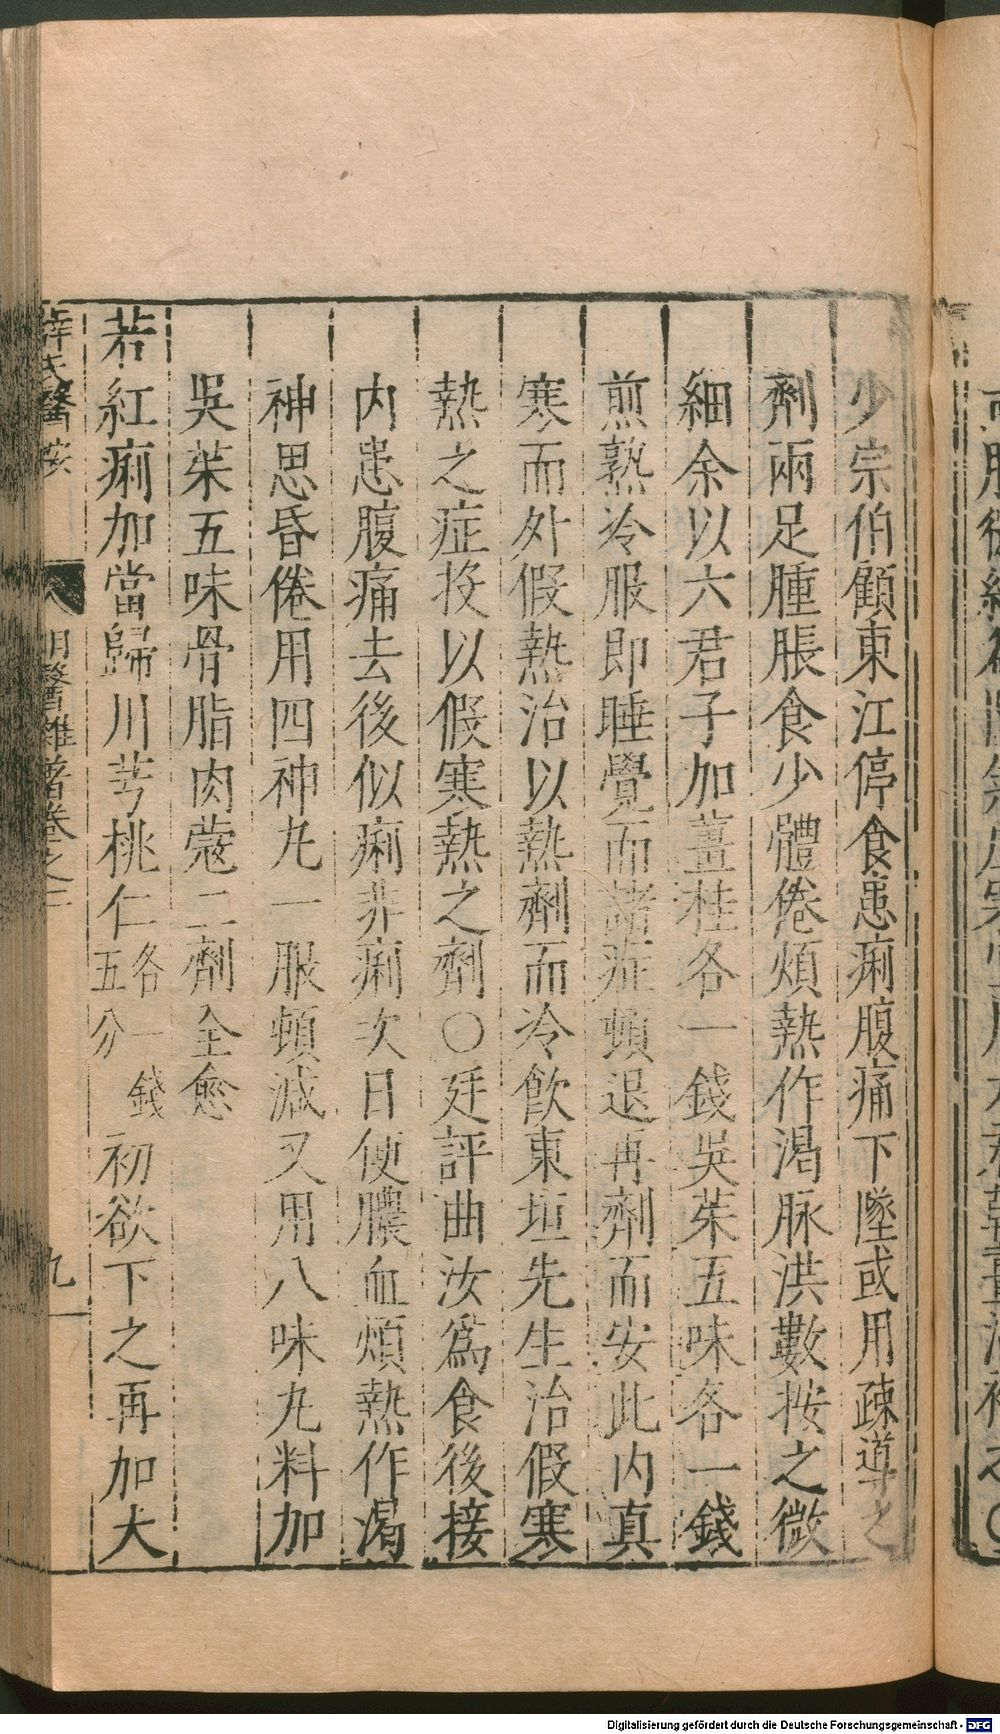 少宗伯顧東江停食患痢腹痛下墜或用疎導之
劑兩足腫脹食少體倦煩熱作渴脉洪數按之微
細余以六君子加薑桂各一錢吳茱五味各一錢
煎熟冷服即睡覺而諸症頓退再劑而安此内真
寒而外假熱治以熱劑而冷飲東垣先生治假寒
熱之症投以假寒熱之劑〇廷評曲汝爲食後接
内患腹痛去後似痢非痢次日便膿血煩熱作渴
神思昏倦用四神丸一服頓減又用八味丸料加
吳茱五味骨脂肉蔻二劑全愈
若紅痢加當歸川芎桃仁各一錢五分初欲下之再加大
醫按 明醫雜著卷之二 九
Digitalisierung gefördert durch die Deutsche Forschungsgemeinschaft - DFG